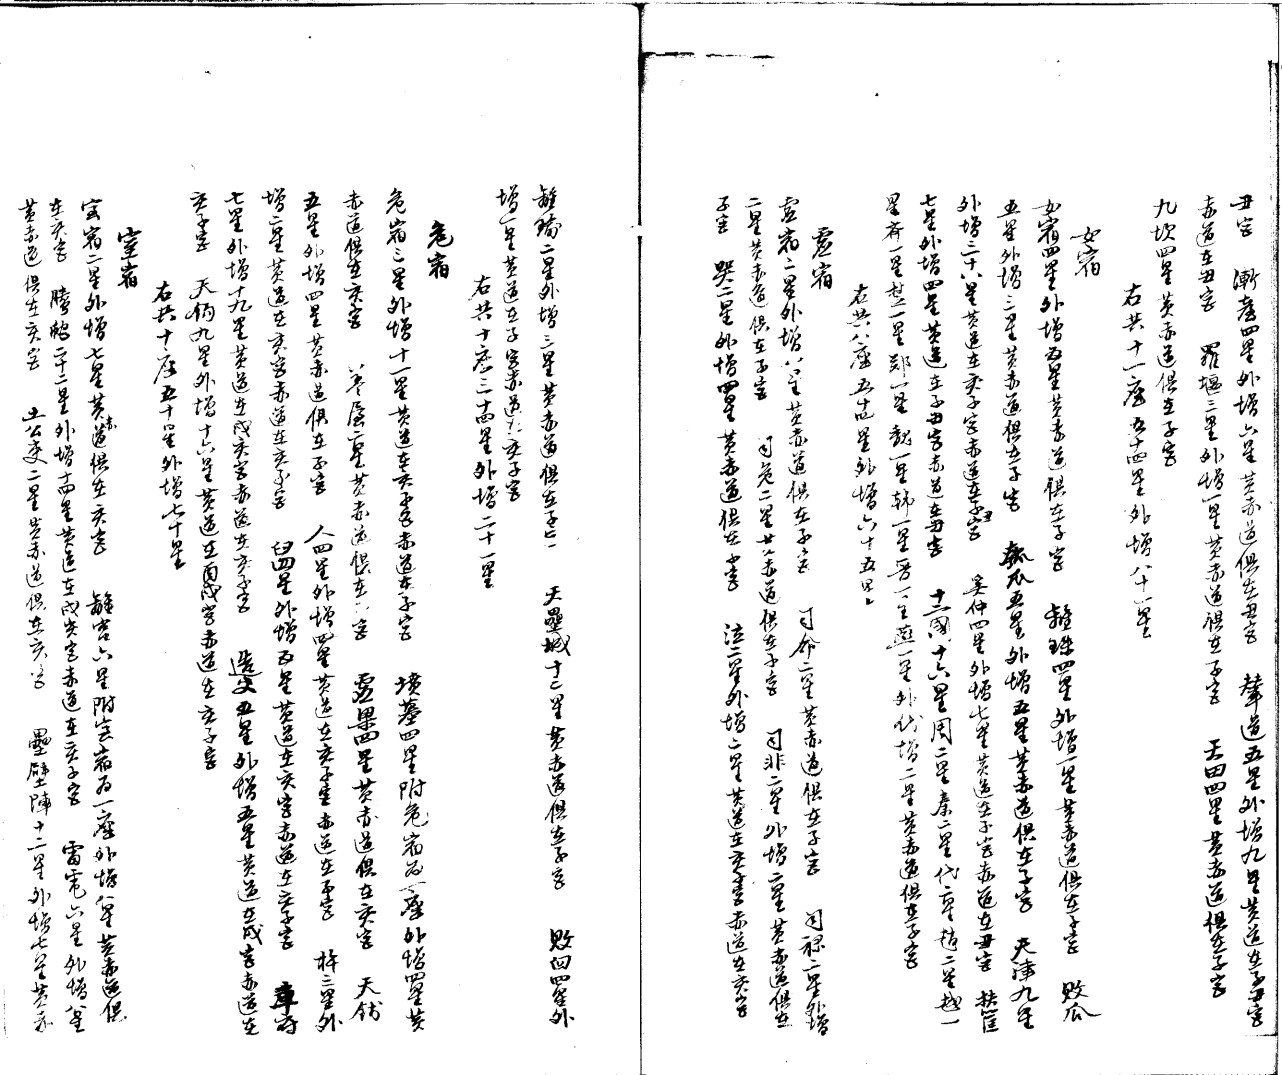 丑宮　漸臺四星外增六星黃赤道俱在丑宮　輦道五星外增九星黃道在子丑宮
赤道在丑宮　羅堰三星外增一星黃赤道俱在子宮　天田四星黃赤道俱在子宮
九坎四星黃赤道俱在子宮
右共十一座五十四星外增八十一星
女宿
女宿四星外增五星黃赤道俱在子宮　離珠四星外增一星黃赤道俱在子宮　敗瓜
五星外增三星黃赤道俱在子宮　瓠瓜五星外增五星黃赤道俱在子宮　天津九星
外增三十八星黃道在亥子宮赤道在子丑宮　奚仲四星外增七星黃道在子宮赤道在丑宮　扶筐
七星外增四星黃道在子丑宮赤道在丑宮　十二國十六星周二星秦二星代二星趙二星越一
星齊一星楚一星鄭一星魏一星韓一星晉一星燕一星外代增二星黃赤道俱在子宮
右共八座五十四星外增六十五星
虛宿
虛宿二星外增八星黃赤道俱在子宮　司命二星黃赤道俱在子宮　司祿二星外增
二星黃赤道俱在子宮　司危二星黃赤道俱在子宮　司非二星外增二星黃赤道俱在
子宮　哭二星外增四星黃赤道俱在子宮　泣二星外增二星黃道在亥子宮赤道在亥宮
離瑜二星外增三星黃赤道俱在子宮　天壘城十三星黃赤道俱在子宮　敗臼四星外
增一星黃道在子宮赤道在亥子宮
右共十座三十四星外增二十一星
危宿
危宿三星外增十一星黃道在亥子宮赤道在子宮　墳墓四星附危宿為一座外增四星黃
赤道俱在亥宮　蓋屋二星黃赤道俱在亥宮　虛梁四星黃赤道俱在亥宮　天錢
五星外增四星黃赤道俱在子宮　人四星外增四星黃道在亥子宮赤道在子宮　杵三星外
增一星黃道在亥宮赤道在亥子宮　臼四星外增五星黃道在亥宮赤道在亥子宮　車府
七星外增十九星黃道在戌亥宮赤道在亥子宮　造父五星外增五星黃道在戌宮赤道在
亥子宮　天鉤九星外增十六星黃道在酉戌宮赤道在亥子宮
右共十座五十星外增七十星
室宿
室宿二星外增七星黃赤道俱在亥宮　離宮六星附室宿為一座外增八星黃赤道俱
在亥宮　螣蛇二十二星外增十四星黃道在戌亥宮赤道在亥子宮　雷電六星外增八星
黃赤道俱在亥宮　土公吏二星黃赤道俱在亥宮　壘壁陣十二星外增七星黃赤